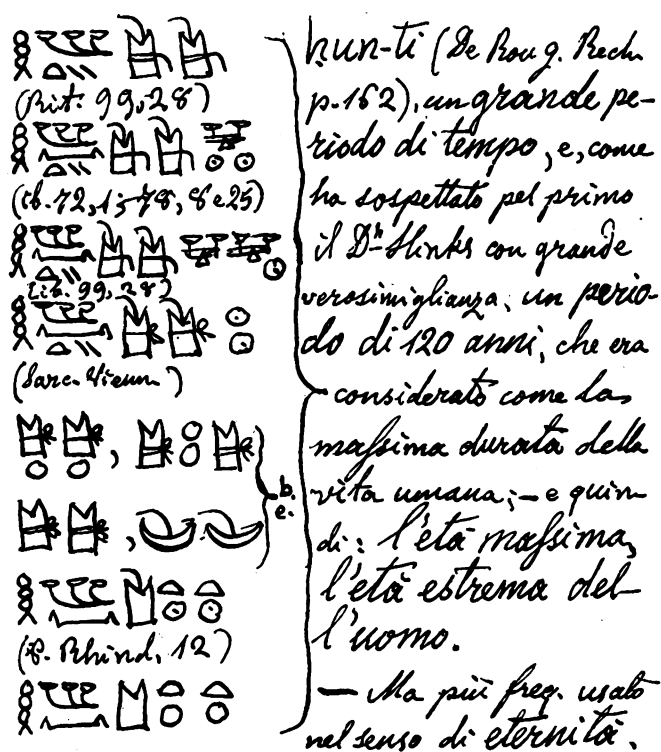 (Rit. 99,28)
(ib. 72,1; 78, 8 e 25)
Lib. 99, 28)
(Sarc. Vienn.)
b.
e.
(P. Rhind, 12)
ḥun-ti (De Roug. Rech.
p. 162), un grande pe-
riodo di tempo, e, come
ha sospettato pel primo
il Dr Hinks con grande
verosimiglianza, un perio-
do di 120 anni, che era
considerato come la
massima durata della
vita umana; — e quin
di: l'età massima,
l'età estrema del-
l'uomo.
— Ma più freq. usato
nel senso di eternità.